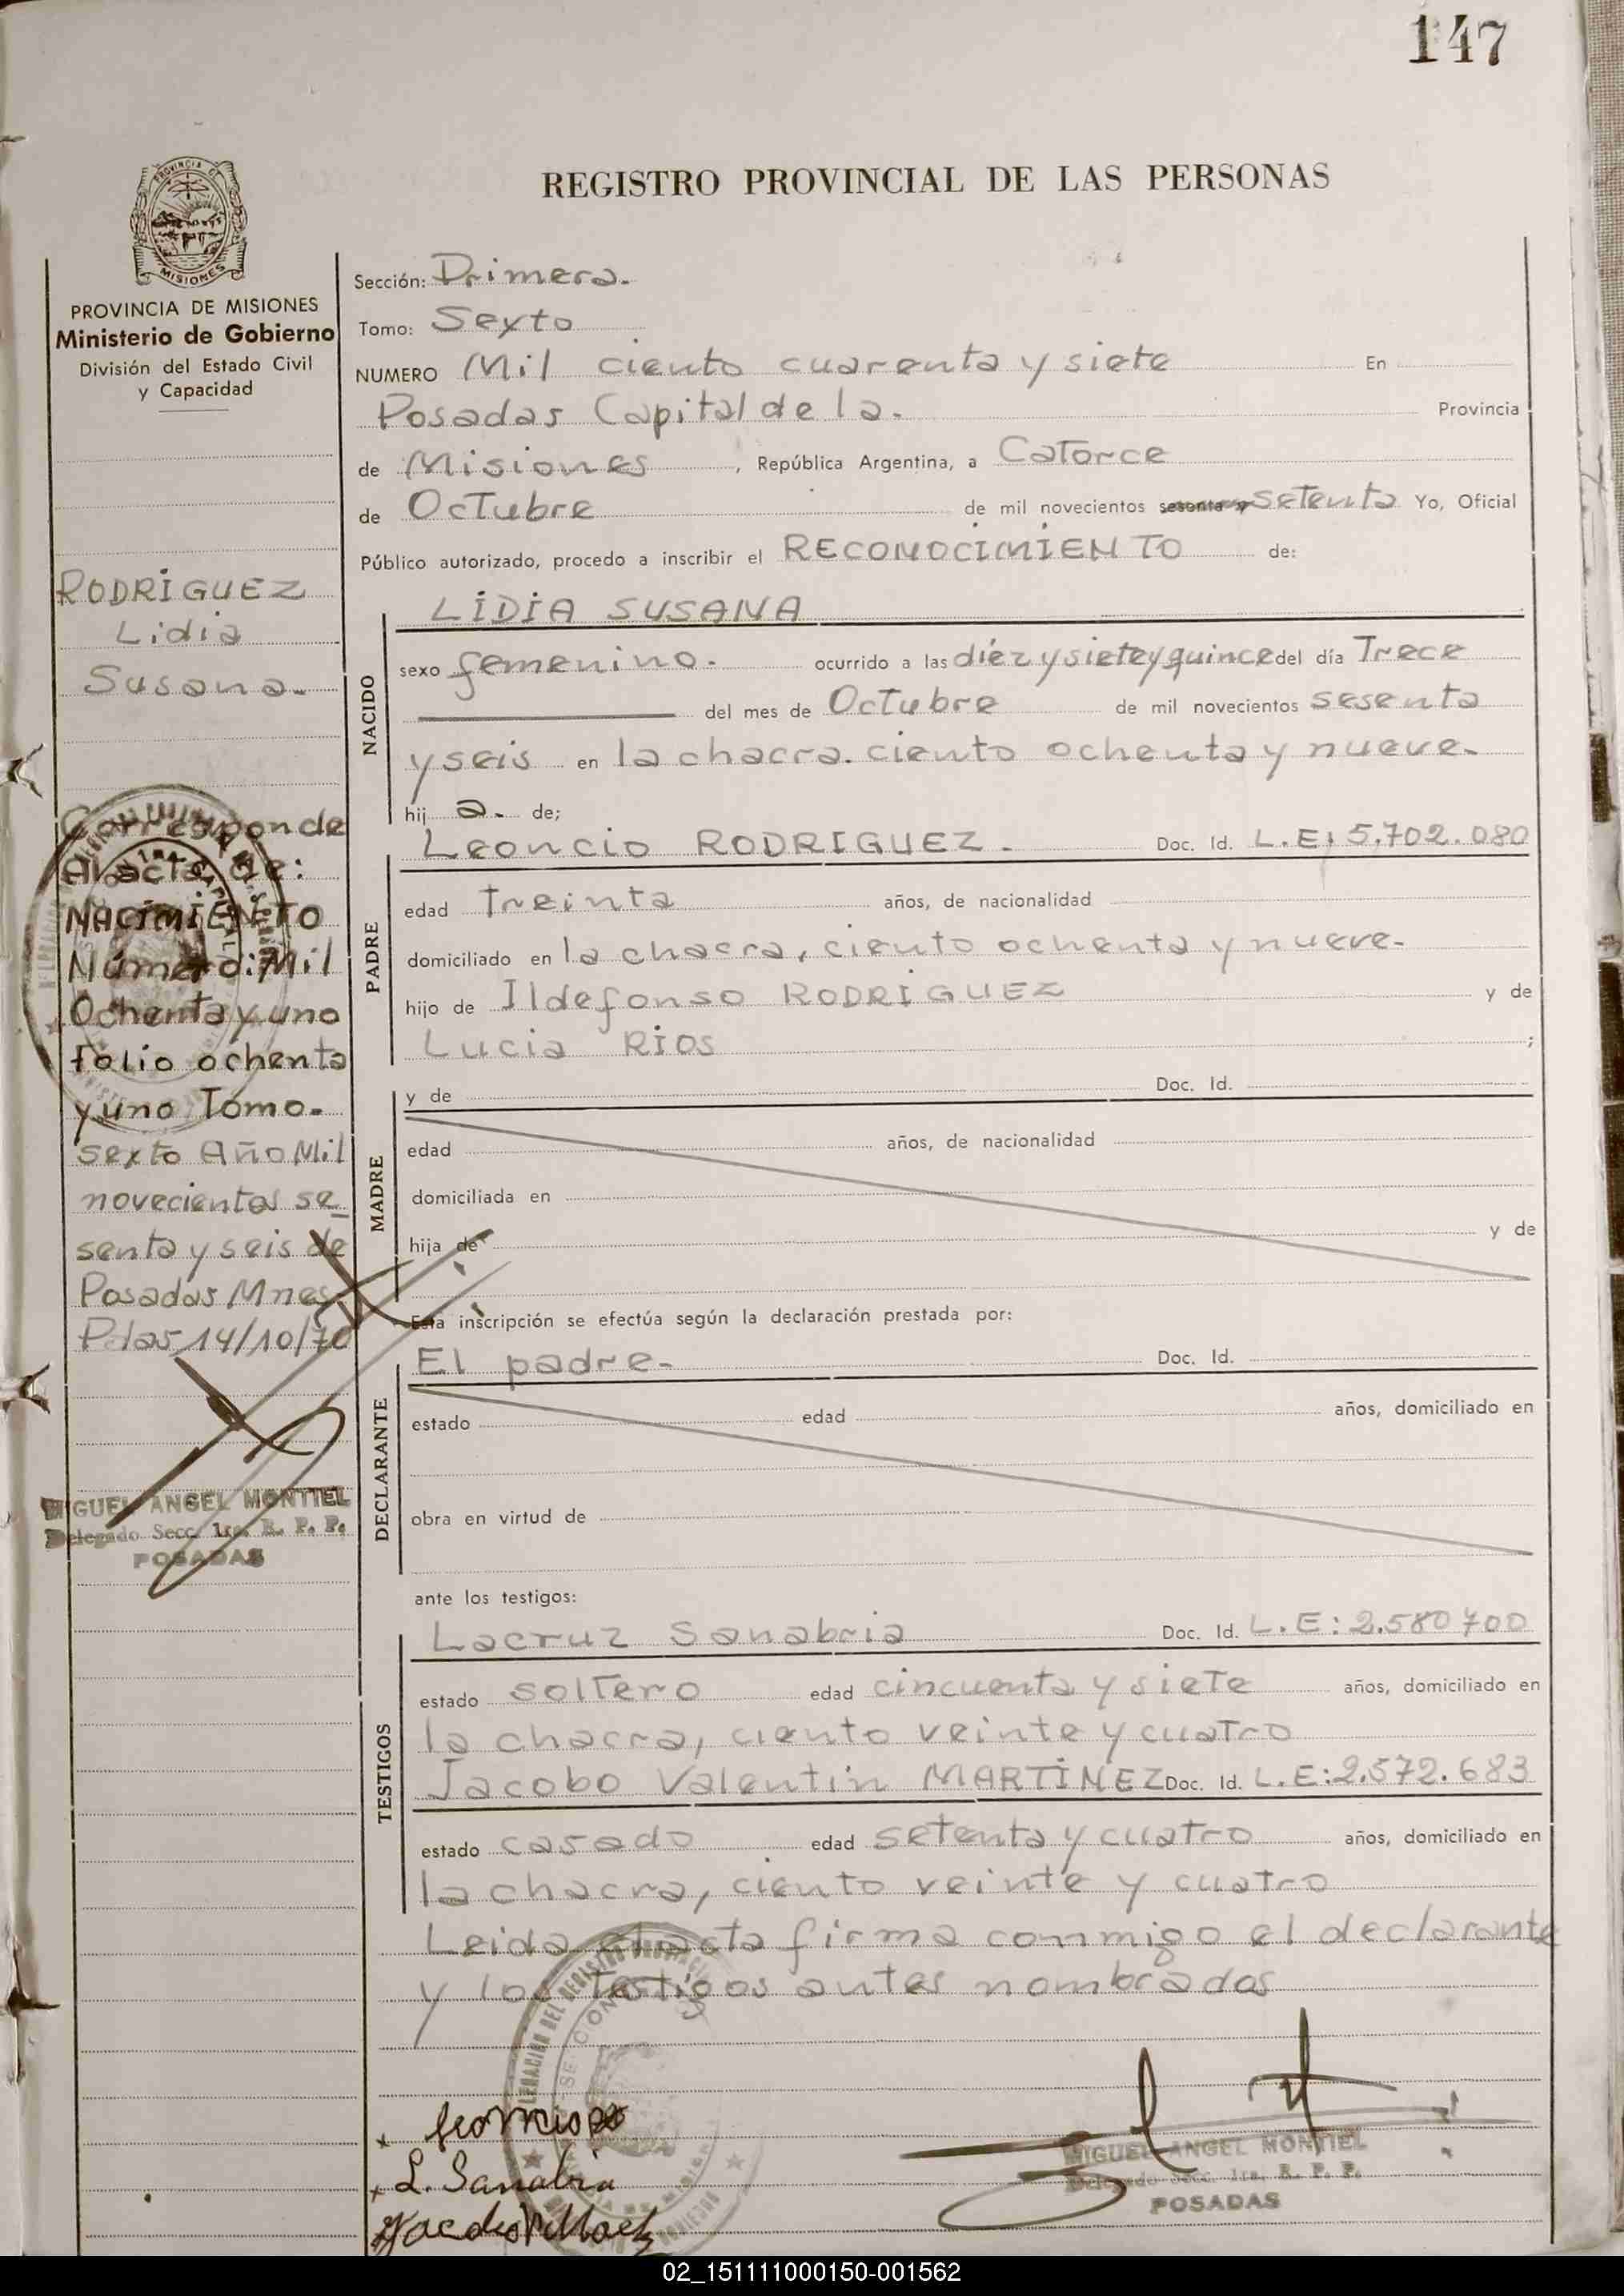 147
REGISTRO PROVINCIAL DE LAS PERSONAS
PROVINCIA DE MISIONES
Ministerio de Gobierno
División del Estado Civil
y Capacidad
RODRIGUEZ
Lidia
Susana.
Corresponde
Al acta de:
NACIMIENTO
Número: Mil
Ochenta y uno
folio ochenta
y uno Tomo.
sexto Año Mil
novecientos se_
senta y seis de
Posadas Mnes.
Pdas 14/10/70
MIGUEL ANGEL MONTIEL
Delegado Secc. 1ra. R. P. P.
POSADAS
Sección: Primera.
Tomo: Sexto
NUMERO Mil ciento cuarenta y siete En
Posadas Capital de la. Provincia
de Misiones, República Argentina, a Catorce
de Octubre de mil novecientos sesenta y setenta Yo, Oficial
Público autorizado, procedo a inscribir el RECONOCIMIENTO de:
LIDIA SUSANA
NACIDO
sexo femenino. ocurrido a las diéz y siete y quince del día Trece
del mes de Octubre de mil novecientos sesenta
y seis en la chacra. ciento ochenta y nueve.
hij a. de;
Leoncio RODRIGUEZ. Doc. Id. L.E: 5.702.080
PADRE
edad Treinta años, de nacionalidad
domiciliado en la chacra, ciento ochenta y nueve.
hijo de Ildefonso RODRIGUEZ y de
Lucia RIOS ;
y de Doc. Id.
MADRE
edad años, de nacionalidad
domiciliada en
hija de y de
Esta inscripción se efectúa según la declaración prestada por:
El padre. Doc. Id.
DECLARANTE
estado edad años, domiciliado en
obra en virtud de
ante los testigos:
Lacruz Sanabria Doc. Id. L.E: 2.580700
TESTIGOS
estado soltero edad cincuenta y siete años, domiciliado en
la chacra, ciento veinte y cuatro
Jacobo Valentin MARTINEZ Doc. Id. L.E: 2.572.683
estado casado edad setenta y cuatro años, domiciliado en
la chacra, ciento veinte y cuatro
Leida el acta firma conmigo el declarante
y los testigos antes nombrados
L. Sanabria
MIGUEL ANGEL MONTIEL
Delegado Secc. 1ra. R. P. P.
POSADAS
02_151111000150-001562